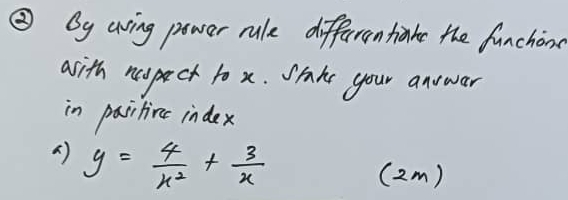 ② By using power rule differentiate the functions
with respect to x. State your answer
in positive index
a) y = 4/x² + 3/x (2m)